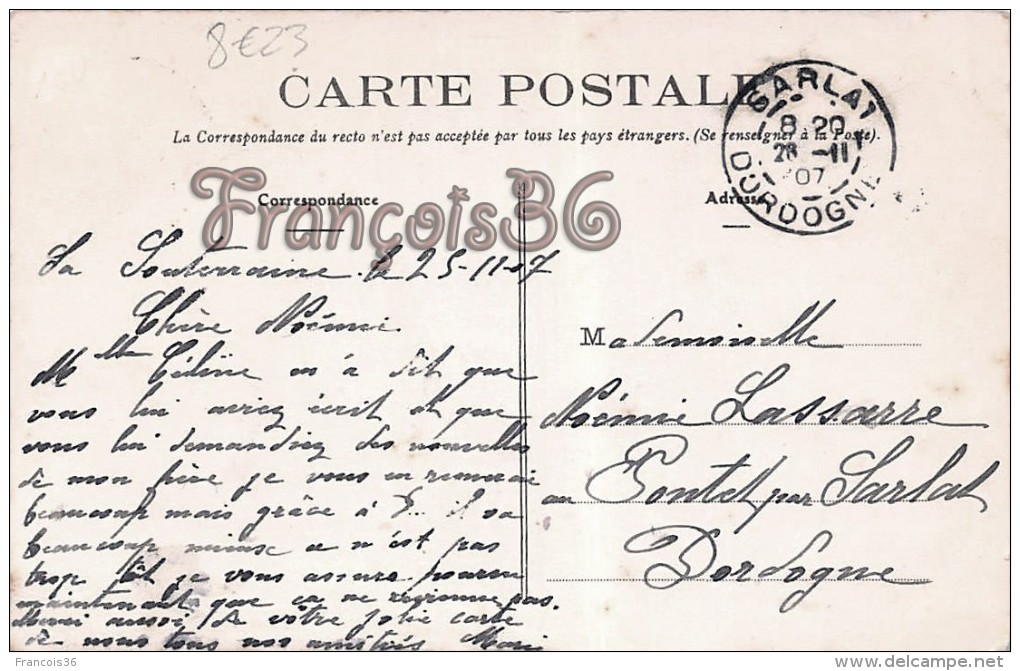 8€23
CARTE POSTALE
La Correspondance du recto n'est pas acceptée par tous les pays étrangers. (Se renseigner à la Poste).
SARLAT
8 20
26 -11
07
DORDOGNE
François36
Correspondance
Adresse
La Souterraine le 25-11-07
Chère Noémie
Mlle Céline m'a dit que
vous lui aviez écrit et que
vous lui demandiez des nouvelles
de mon père je vous en remercie
beaucoup mais grâce à D... il va
beaucoup mieux ce n'est pas
trop tôt je vous assure pourvu
maintenant que ça ne reprenne pas.
Merci aussi de votre jolie carte
de nous tous nos amitiés Marie
Mademoiselle
Noémie Lassarre
au Pontet par Sarlat
Dordogne
Francois36
delcampe.net